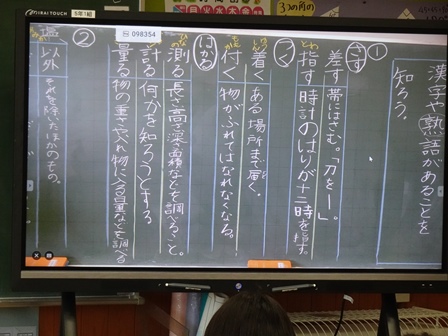 漢字や熟語があることを
知ろう。
①
さす
差す 帯にはさむ。「刀を―」
指す 時計のはりが十二時を指す。
つく
着く ある場所まで届く。
付く 物がふれてはなれなくなる。
はかる
測る 長さ高さ深さ面積などを調べること。
計る 何かを知ろうとする
量る 物の重さや入れ物に入る量などを調べる
②
以外
それを除いたほかのもの。
098354
5年1組
日月火水木金
3つの角の